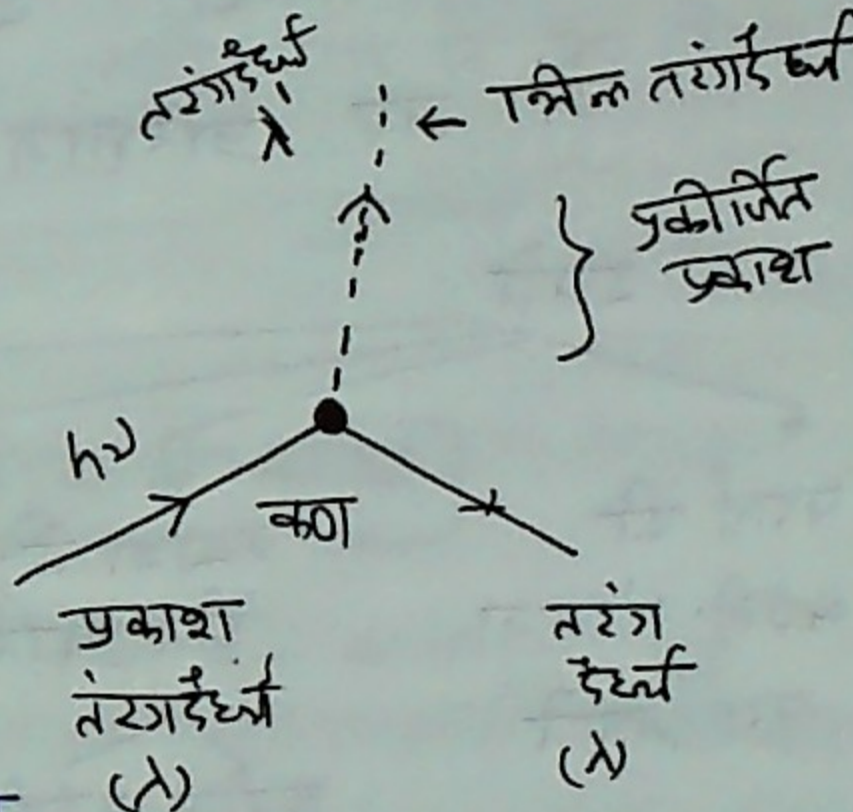 तरंगदैर्ध्य
λ
← भिन्न तरंगदैर्ध्य
प्रकीर्णित
प्रकाश
hν
कण
प्रकाश
तंरगदैर्ध्य
(λ)
तरंग
दैर्ध्य
(λ)